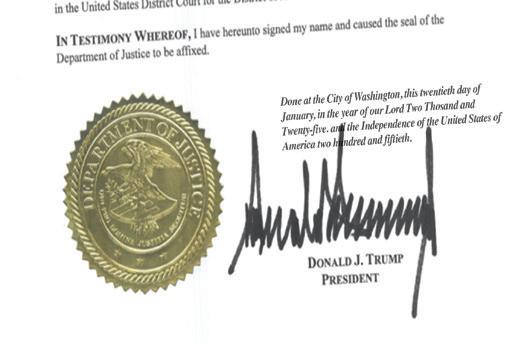 in the United States District Court for the
IN TESTIMONY WHEREOF, I have hereunto signed my name and caused the seal of the
Department of Justice to be affixed.
Done at the City of Washington, this twentieth day of
January, in the year of our Lord Two Thosand and
Twenty-five. and the Independence of the United States of
America two hundred and fiftieth.
DEPARTMENT OF JUSTICE
QUI PRO DOMINA JUSTITIA SEQUITUR
DONALD J. TRUMP
PRESIDENT